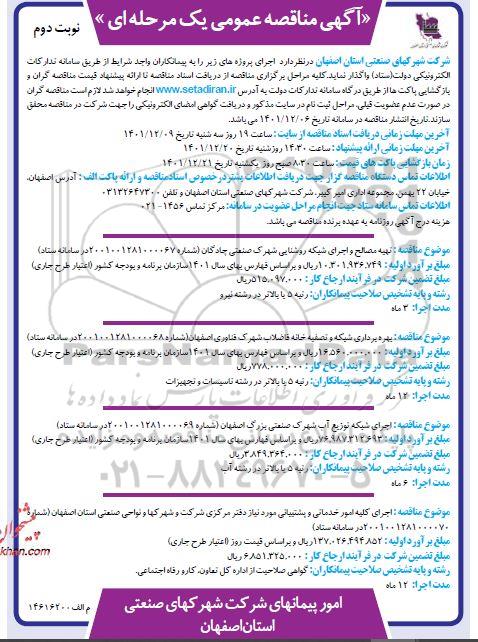 «آگهی مناقصه عمومی یک مرحله ای»
نوبت دوم
شرکت شهرکهای صنعتی استان اصفهان درنظردارد اجرای پروژه های زیر را به پیمانکاران واجد شرایط از طریق سامانه تدارکات
الکترونیکی دولت(ستاد) واگذار نماید.کلیه مراحل برگزاری مناقصه از دریافت اسناد مناقصه تا ارائه پیشنهاد قیمت مناقصه گران و
بازگشایی پاکت ها از طریق درگاه سامانه تدارکات دولت به آدرس www.setadiran.ir انجام خواهد شد.لازم است مناقصه گران
در صورت عدم عضویت قبلی، مراحل ثبت نام در سایت مذکور و دریافت گواهی امضای الکترونیکی را جهت شرکت در مناقصه محقق
سازند.تاریخ انتشار مناقصه در سامانه تاریخ ۱۴۰۱/۱۲/۰۶ می باشد.
آخرین مهلت زمانی دریافت اسناد مناقصه از سایت: ساعت ۱۹ روز سه شنبه تاریخ ۱۴۰۱/۱۲/۰۹
آخرین مهلت زمانی ارائه پیشنهاد: ساعت ۱۴:۳۰ روزشنبه تاریخ ۱۴۰۱/۱۲/۲۰
زمان بازگشایی پاکت های قیمت: ساعت ۸:۳۰ صبح روز یکشنبه تاریخ ۱۴۰۱/۱۲/۲۱
اطلاعات تماس دستگاه مناقصه گزار جهت دریافت اطلاعات بیشتر درخصوص اسناد مناقصه و ارائه پاکت الف : آدرس اصفهان،
خیابان ۲۲ بهمن، مجموعه اداری امیر کبیر، شرکت شهرکهای صنعتی استان اصفهان و تلفن ۰۳۱۳۲۶۴۷۳۰۰
اطلاعات تماس سامانه ستاد جهت انجام مراحل عضویت در سامانه: مرکز تماس ۱۴۵۶-۰۲۱
هزینه درج آگهی روزنامه به عهده برنده مناقصه می باشد.
موضوع مناقصه : تهیه مصالح و اجرای شبکه روشنایی شهرک صنعتی چادگان (شماره ۲۰۰۱۰۰۱۲۸۱۰۰۰۰۶۷در سامانه ستاد)
مبلغ برآورد اولیه : ۱۰.۳۰۱.۹۳۶.۷۴۹ریال و براساس فهارس بهای سال ۱۴۰۱سازمان برنامه و بودجه کشور (اعتبار طرح جاری)
مبلغ تضمین شرکت در فرآیند ارجاع کار : ۵۱۵.۰۹۷.۰۰۰ریال
رشته و پایه تشخیص صلاحیت پیمانکاران: رتبه ۵ یا بالاتر در رشته نیرو
مدت اجرا: ۳ ماه
موضوع مناقصه: بهره برداری شبکه و تصفیه خانه فاضلاب شهرک فناوری اصفهان(شماره۲۰۰۱۰۰۱۲۸۱۰۰۰۰۶۸در سامانه ستاد)
مبلغ برآورد اولیه : ۱۶.۵۶۰.۰۰۰.۰۰۰ریال و براساس فهارس بهای سال ۱۴۰۱سازمان برنامه و بودجه کشور (اعتبار طرح جاری)
مبلغ تضمین شرکت در فرآیند ارجاع کار : ۷۷۸.۰۰۰.۰۰۰ریال
رشته و پایه تشخیص صلاحیت پیمانکاران: رتبه ۵ یا بالاتر در رشته تاسیسات و تجهیزات
مدت اجرا: ۱۲ ماه
موضوع مناقصه : اجرای شبکه توزیع آب شهرک صنعتی بزرگ اصفهان (شماره ۲۰۰۱۰۰۱۲۸۱۰۰۰۰۶۹در سامانه ستاد)
مبلغ برآورد اولیه : ۷۶.۹۸۷.۳۱۲.۶۹۳ریال و براساس فهارس بهای سال ۱۴۰۱سازمان برنامه و بودجه کشور (اعتبار طرح جاری)
مبلغ تضمین شرکت در فرآیند ارجاع کار : ۳.۸۴۹.۳۶۴.۰۰۰ریال
رشته و پایه تشخیص صلاحیت پیمانکاران: رتبه ۵ یا بالاتر در رشته آب
مدت اجرا: ۶ ماه
موضوع مناقصه : اجرای کلیه امور خدماتی و پشتیبانی مورد نیاز دفتر مرکزی شرکت و شهرکها و نواحی صنعتی استان اصفهان (شماره
۲۰۰۱۰۰۱۲۸۱۰۰۰۰۷۰در سامانه ستاد)
مبلغ برآورد اولیه : ۱۳۷.۰۲۶.۴۹۴.۸۵۲ریال و براساس قیمت روز (اعتبار طرح جاری)
مبلغ تضمین شرکت در فرآیند ارجاع کار : ۶.۸۵۱.۳۲۵.۰۰۰ ریال
رشته و پایه تشخیص صلاحیت پیمانکاران: گواهی صلاحیت از اداره کل تعاون، کار و رفاه اجتماعی.
مدت اجرا: ۱۲ ماه
م الف ۱۴۶۱۶۲۰۰
امور پیمانهای شرکت شهرکهای صنعتی
استان اصفهان
ParsNamadData
۰۲۱-۸۸۳۴۹۶۷۰-۵